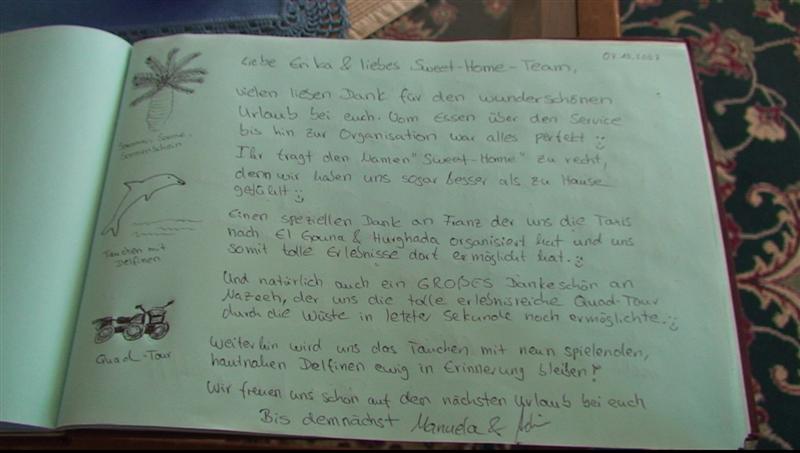 Liebe Erika & liebes Sweet-Home-Team,
vielen lieben Dank für den wunderschönen
Urlaub bei euch. Vom Essen über den Service
bis hin zur Organisation war alles perfekt :)
Ihr tragt den Namen "Sweet-Home" zu recht,
denn wir haben uns sogar besser als zu Hause
gefühlt :)
Einen speziellen Dank an Franz der uns die Taxis
nach El Gouna & Hurghada organisiert hat und uns
somit tolle Erlebnisse dort ermöglicht hat. :)
Und natürlich auch ein GROßES Dankeschön an
Nazeeh, der uns die tolle erlebnisreiche Quad-Tour
durch die Wüste in letzter Sekunde noch ermöglichte. :)
Weiterhin wird uns das Tauchen mit neun spielenden,
hautnahen Delfinen ewig in Erinnerung bleiben!
Wir freuen uns schon auf den nächsten Urlaub bei euch
Bis demnächst Manuela &
Sommer, Sonne,
Sonnenschein
Tauchen mit
Delfinen
Quad-Tour